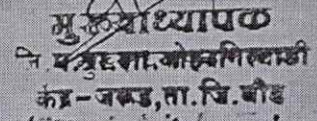 मुख्याध्यापक
जि. प. प्रा. शा.
केंद्र-जरूड, ता. जि. बीड